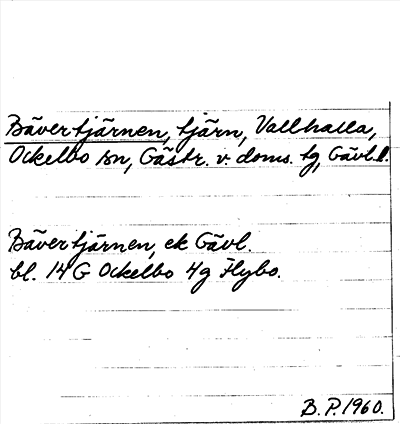 Bävertjärnen, tjärn, Vallhalla,
Ockelbo sn, Gästr. v. doms. tg, Gävl. l.
Bävertjärnen, ek Gävl.
bl. 14 G Ockelbo 4g Flybo.
B. P. 1960.